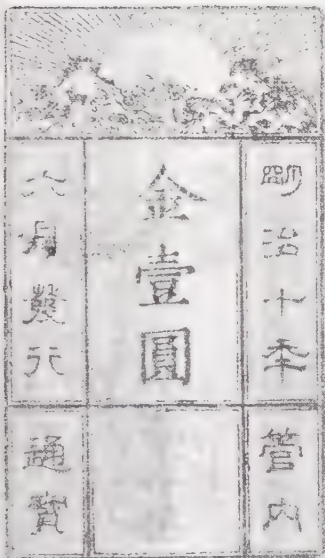 明治十年
管内
金壹圓
六月發行
通寶